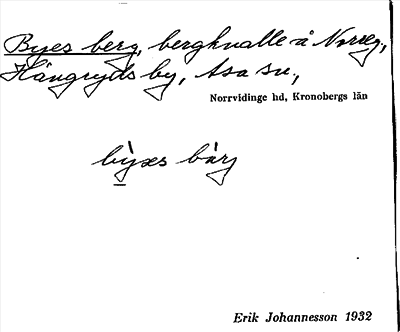 Byes berg, bergknalle å Norreg,
Hängryds by, Asa sn,
Norrvidinge hd, Kronobergs län
by̍æs bàrj
Erik Johannesson 1932